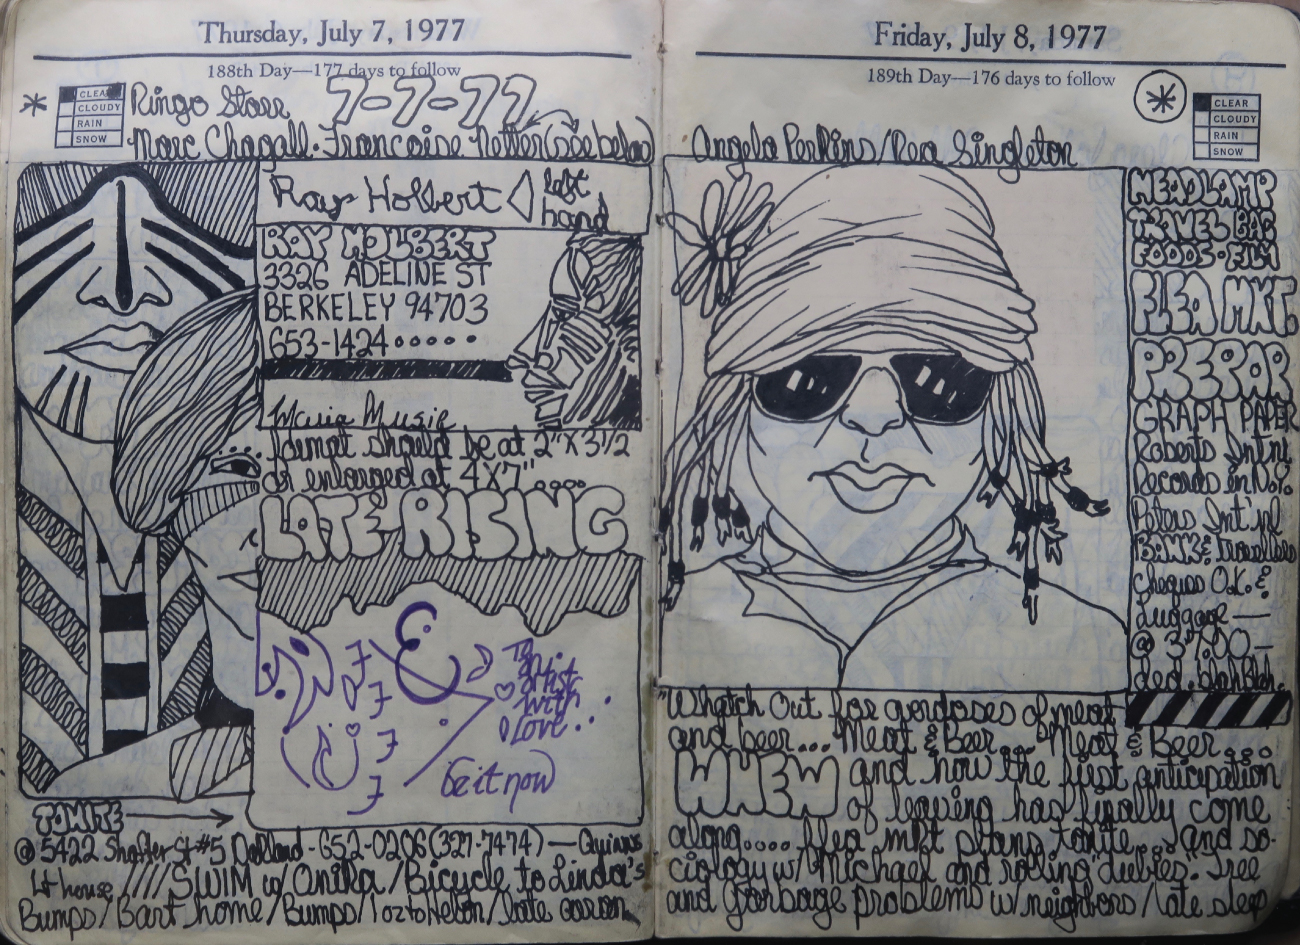 Thursday, July 7, 1977
188th Day—177 days to follow
* CLEAR
CLOUDY
RAIN
SNOW
Ringo Starr 7-7-77
Marc Chagall. Francoise Netter (see below)
Ray Holbert left
hand
RAY HOLBERT
3326 ADELINE ST
BERKELEY 94703
653-1424
Music Music
format should be at 2"X3 1/2
or enlarged at 4X7"....
LATE RISING
To
an
artist
with
Love...
be it now
TONITE
@ 5422 Shafter St #5 Oakland - 652-0206 (327-7474) — Quinn's
Lt house //// SWIM w/ Onika / Bicycle to Linda's
Bumps / Bart home / Bumps / 1 oz to Helen / late
Friday, July 8, 1977
189th Day—176 days to follow
* CLEAR
CLOUDY
RAIN
SNOW
Angela Perkins / Rea Singleton
HEADLAMP
TRAVEL BAG
FOODS - FILM
FLEA MKT.
PREPAR
GRAPH PAPER
Roberts Int'nl
Records in N.Y.
Peters Int'nl
BANK & Travellers
Cheques O.K. &
Luggage —
@ 37.00 —
"Whatch Out for gordoses of meat
and beer... Meat & Beer... Meat & Beer...
WHEW and now the first anticipation
of leaving has finally come
along.... flea mkt plans tonite... and so-
ciology w/ Michael and rolling "dubies." Tree
and Garbage problems w/ neighbors / late sleep